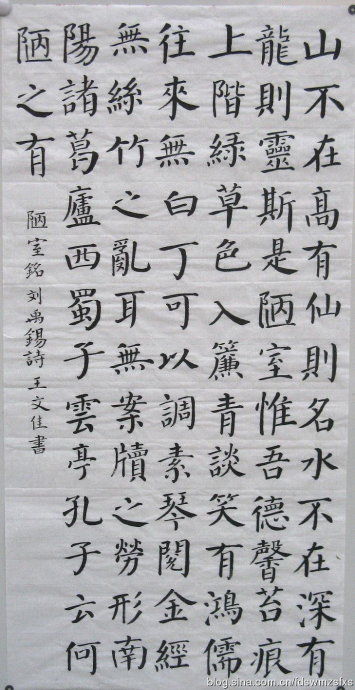 山不在高有仙則名水不在深有
龍則靈斯是陋室惟吾德馨苔痕
上階綠草色入簾青談笑有鴻儒
往來無白丁可以調素琴閱金經
無絲竹之亂耳無案牘之勞形南
陽諸葛廬西蜀子雲亭孔子云何
陋之有
陋室銘刘禹錫詩王文佳書
blog.sina.com.cn/fdswmzsfxs